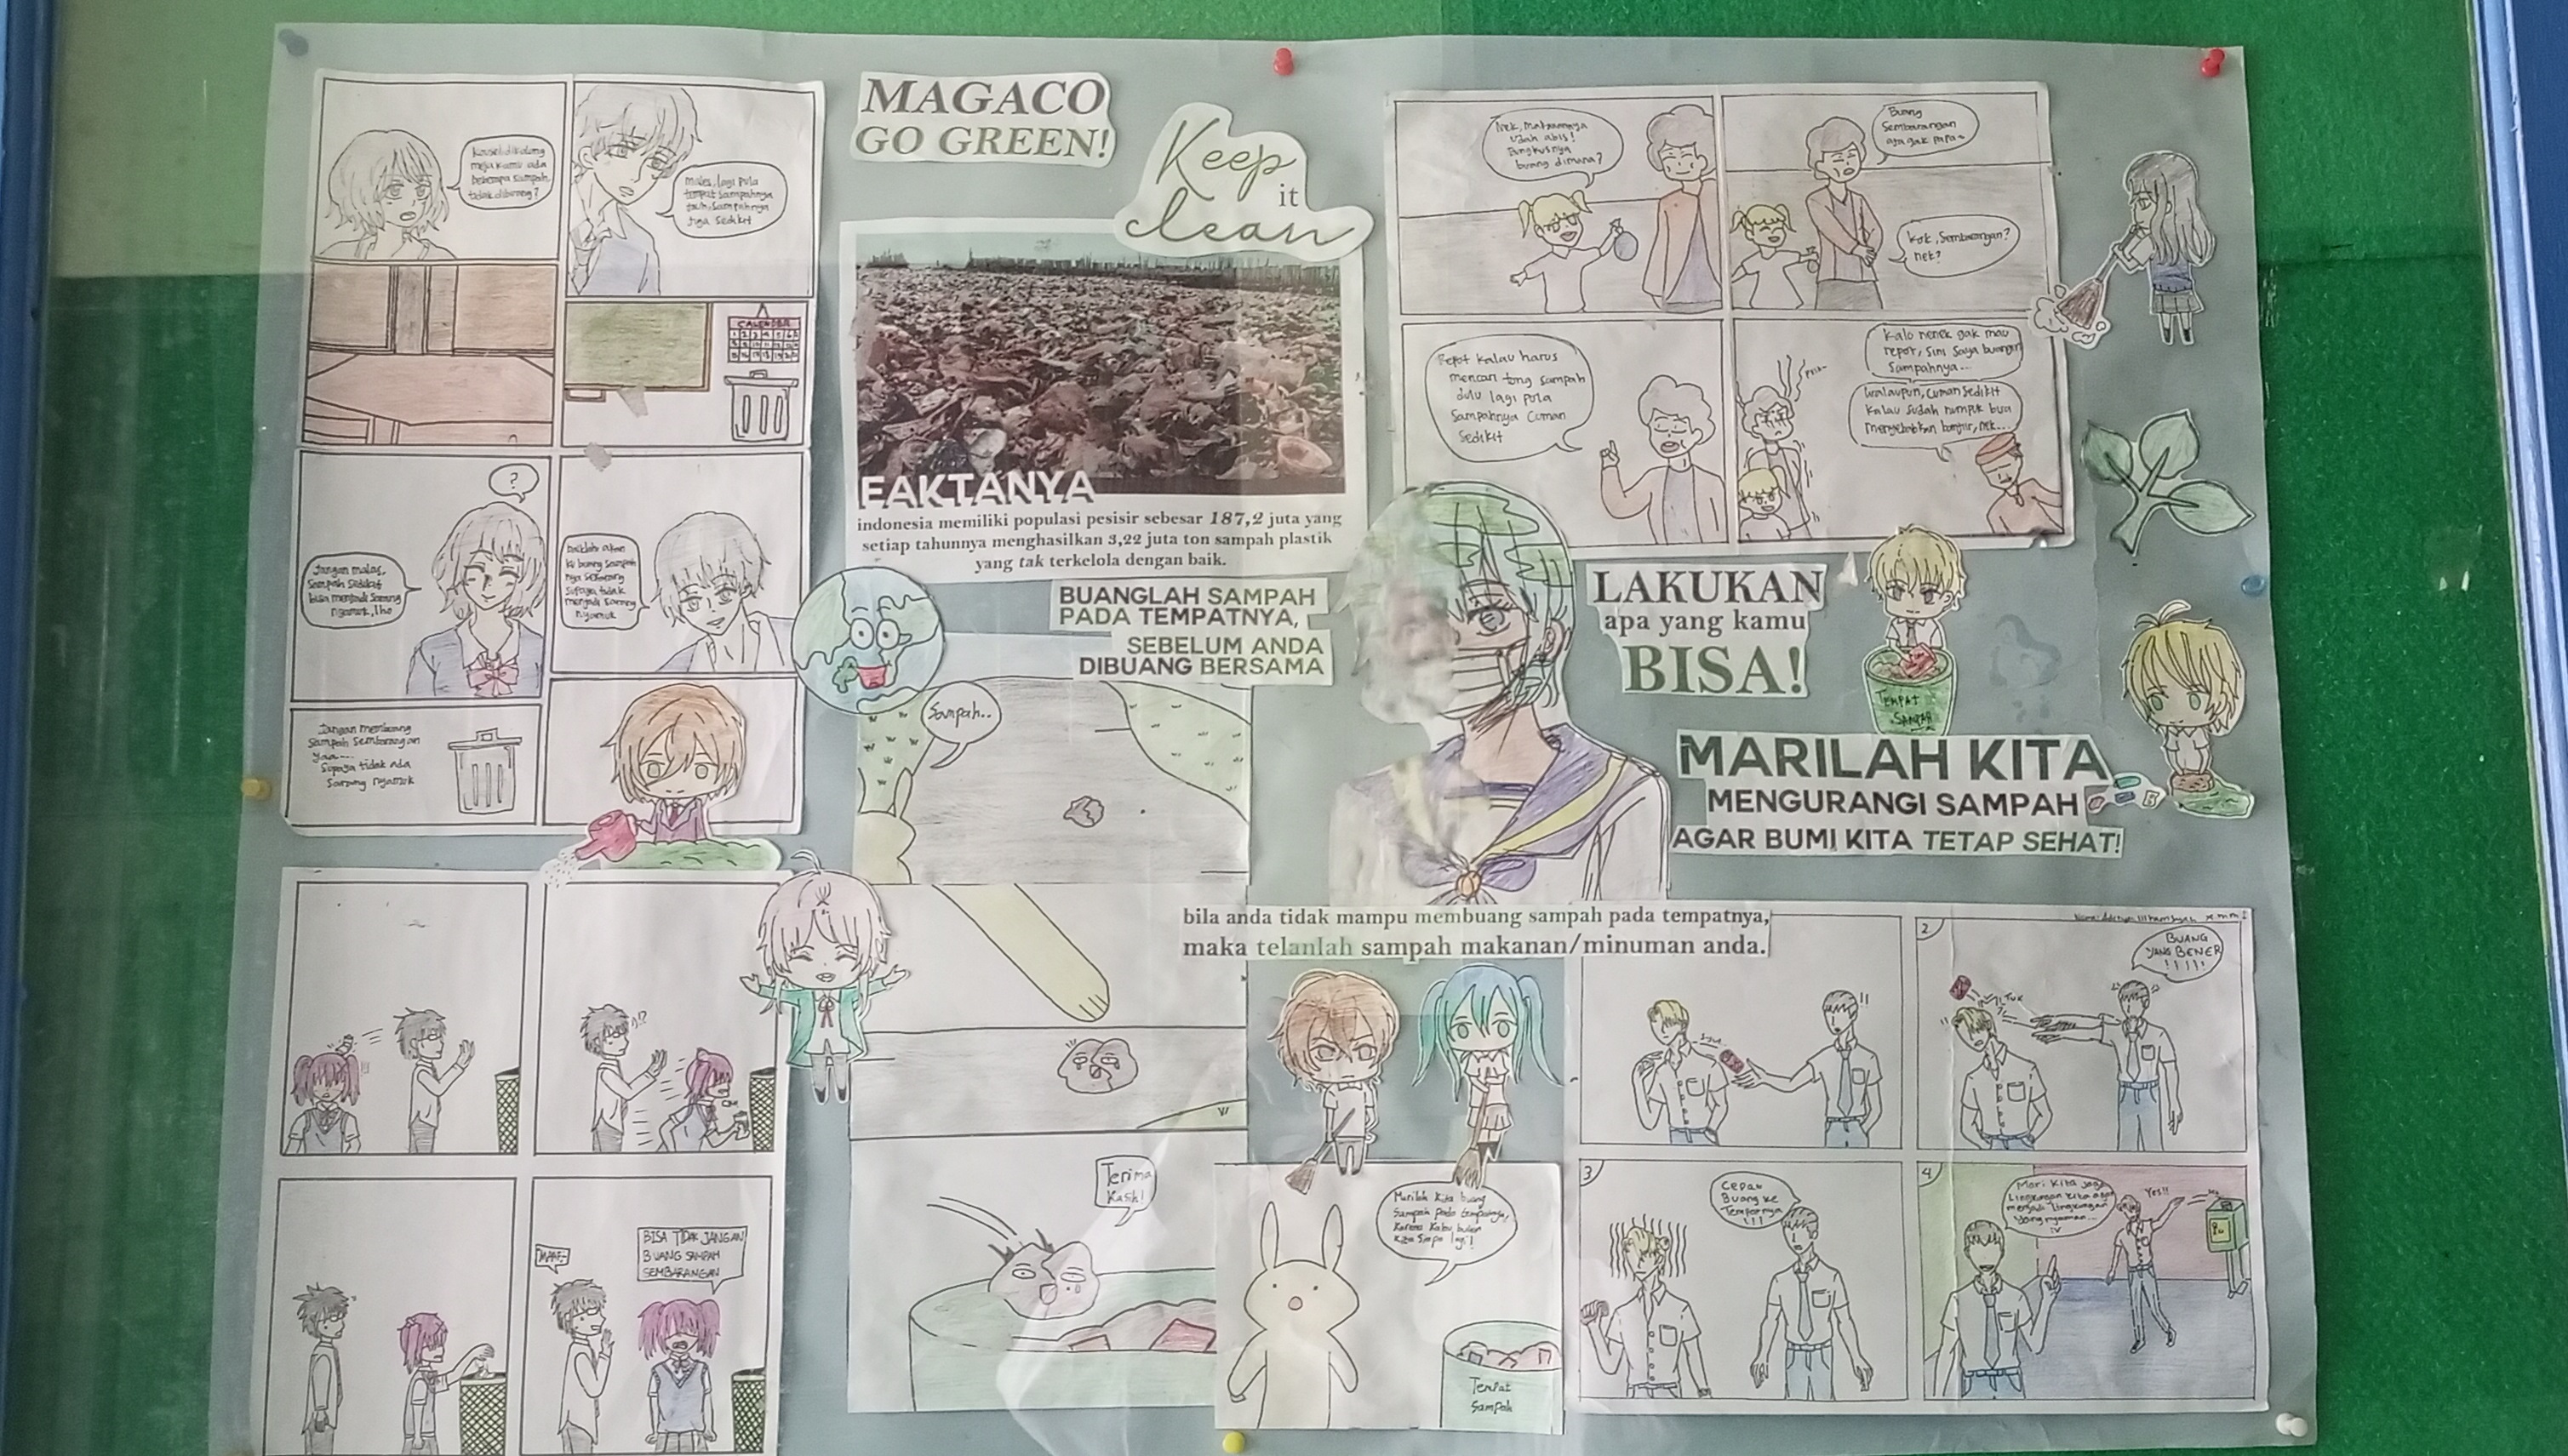 Kawsel dikolong
meja kamu ada
beberapa sampah
tidak dibuang?
males, lagi pula
tempat sampahnya
jauh, sampahnya
juga sedikit
CALENDER
?
Jangan malas,
sampah sedikit
bisa menjadi sarang
nyamuk, lho
Baiklah akan
ku buang sampah
nya sekarang
supaya tidak
menjadi sarang
nyamuk
Jangan membuang
sampah sembarangan
yaa...
supaya tidak ada
sarang nyamuk
MAGACO
GO GREEN!
Keep
it
clean
FAKTANYA
indonesia memiliki populasi pesisir sebesar 187,2 juta yang
setiap tahunnya menghasilkan 3,22 juta ton sampah plastik
yang tak terkelola dengan baik.
BUANGLAH SAMPAH
PADA TEMPATNYA,
SEBELUM ANDA
DIBUANG BERSAMA
Nek, makanannya
udah abis!
Bungkusnya
buang dimana?
Buang
Sembarangan
aja gak papa~
Kok, Sembarangan?
nek?
Repot kalau harus
mencari tong sampah
dulu lagi pula
Sampahnya Cuman
Sedikit
Kalo nenek gak mau
repot, sini saya buangin
Sampahnya...
Walaupun, Cuman Sedikit
Kalau Sudah numpuk bisa
menyebabkan banjir, nek...
LAKUKAN
apa yang kamu
BISA!
TEMPAT
SAMPAH
MARILAH KITA
MENGURANGI SAMPAH
AGAR BUMI KITA TETAP SEHAT!
Sampah..
Terima
Kasih!
bila anda tidak mampu membuang sampah pada tempatnya,
maka telanlah sampah makanan/minuman anda.
Marilah Kita buang
Sampah pada tempatnya,
Karena Kalau bukan
Kita Siapa lagi!
Tempat
Sampah
MAAF-
BISA TIDAK JANGAN
BUANG SAMPAH
SEMBARANGAN
!!
2
TUK
BUANG
YANG BENER
!!!!!
3
CEPAT
Buang ke
Tempatnya
!!!
4
Mari Kita jaga
Lingkungan kita agar
menjadi Lingkungan
Yang nyaman...
:v
Yes!!